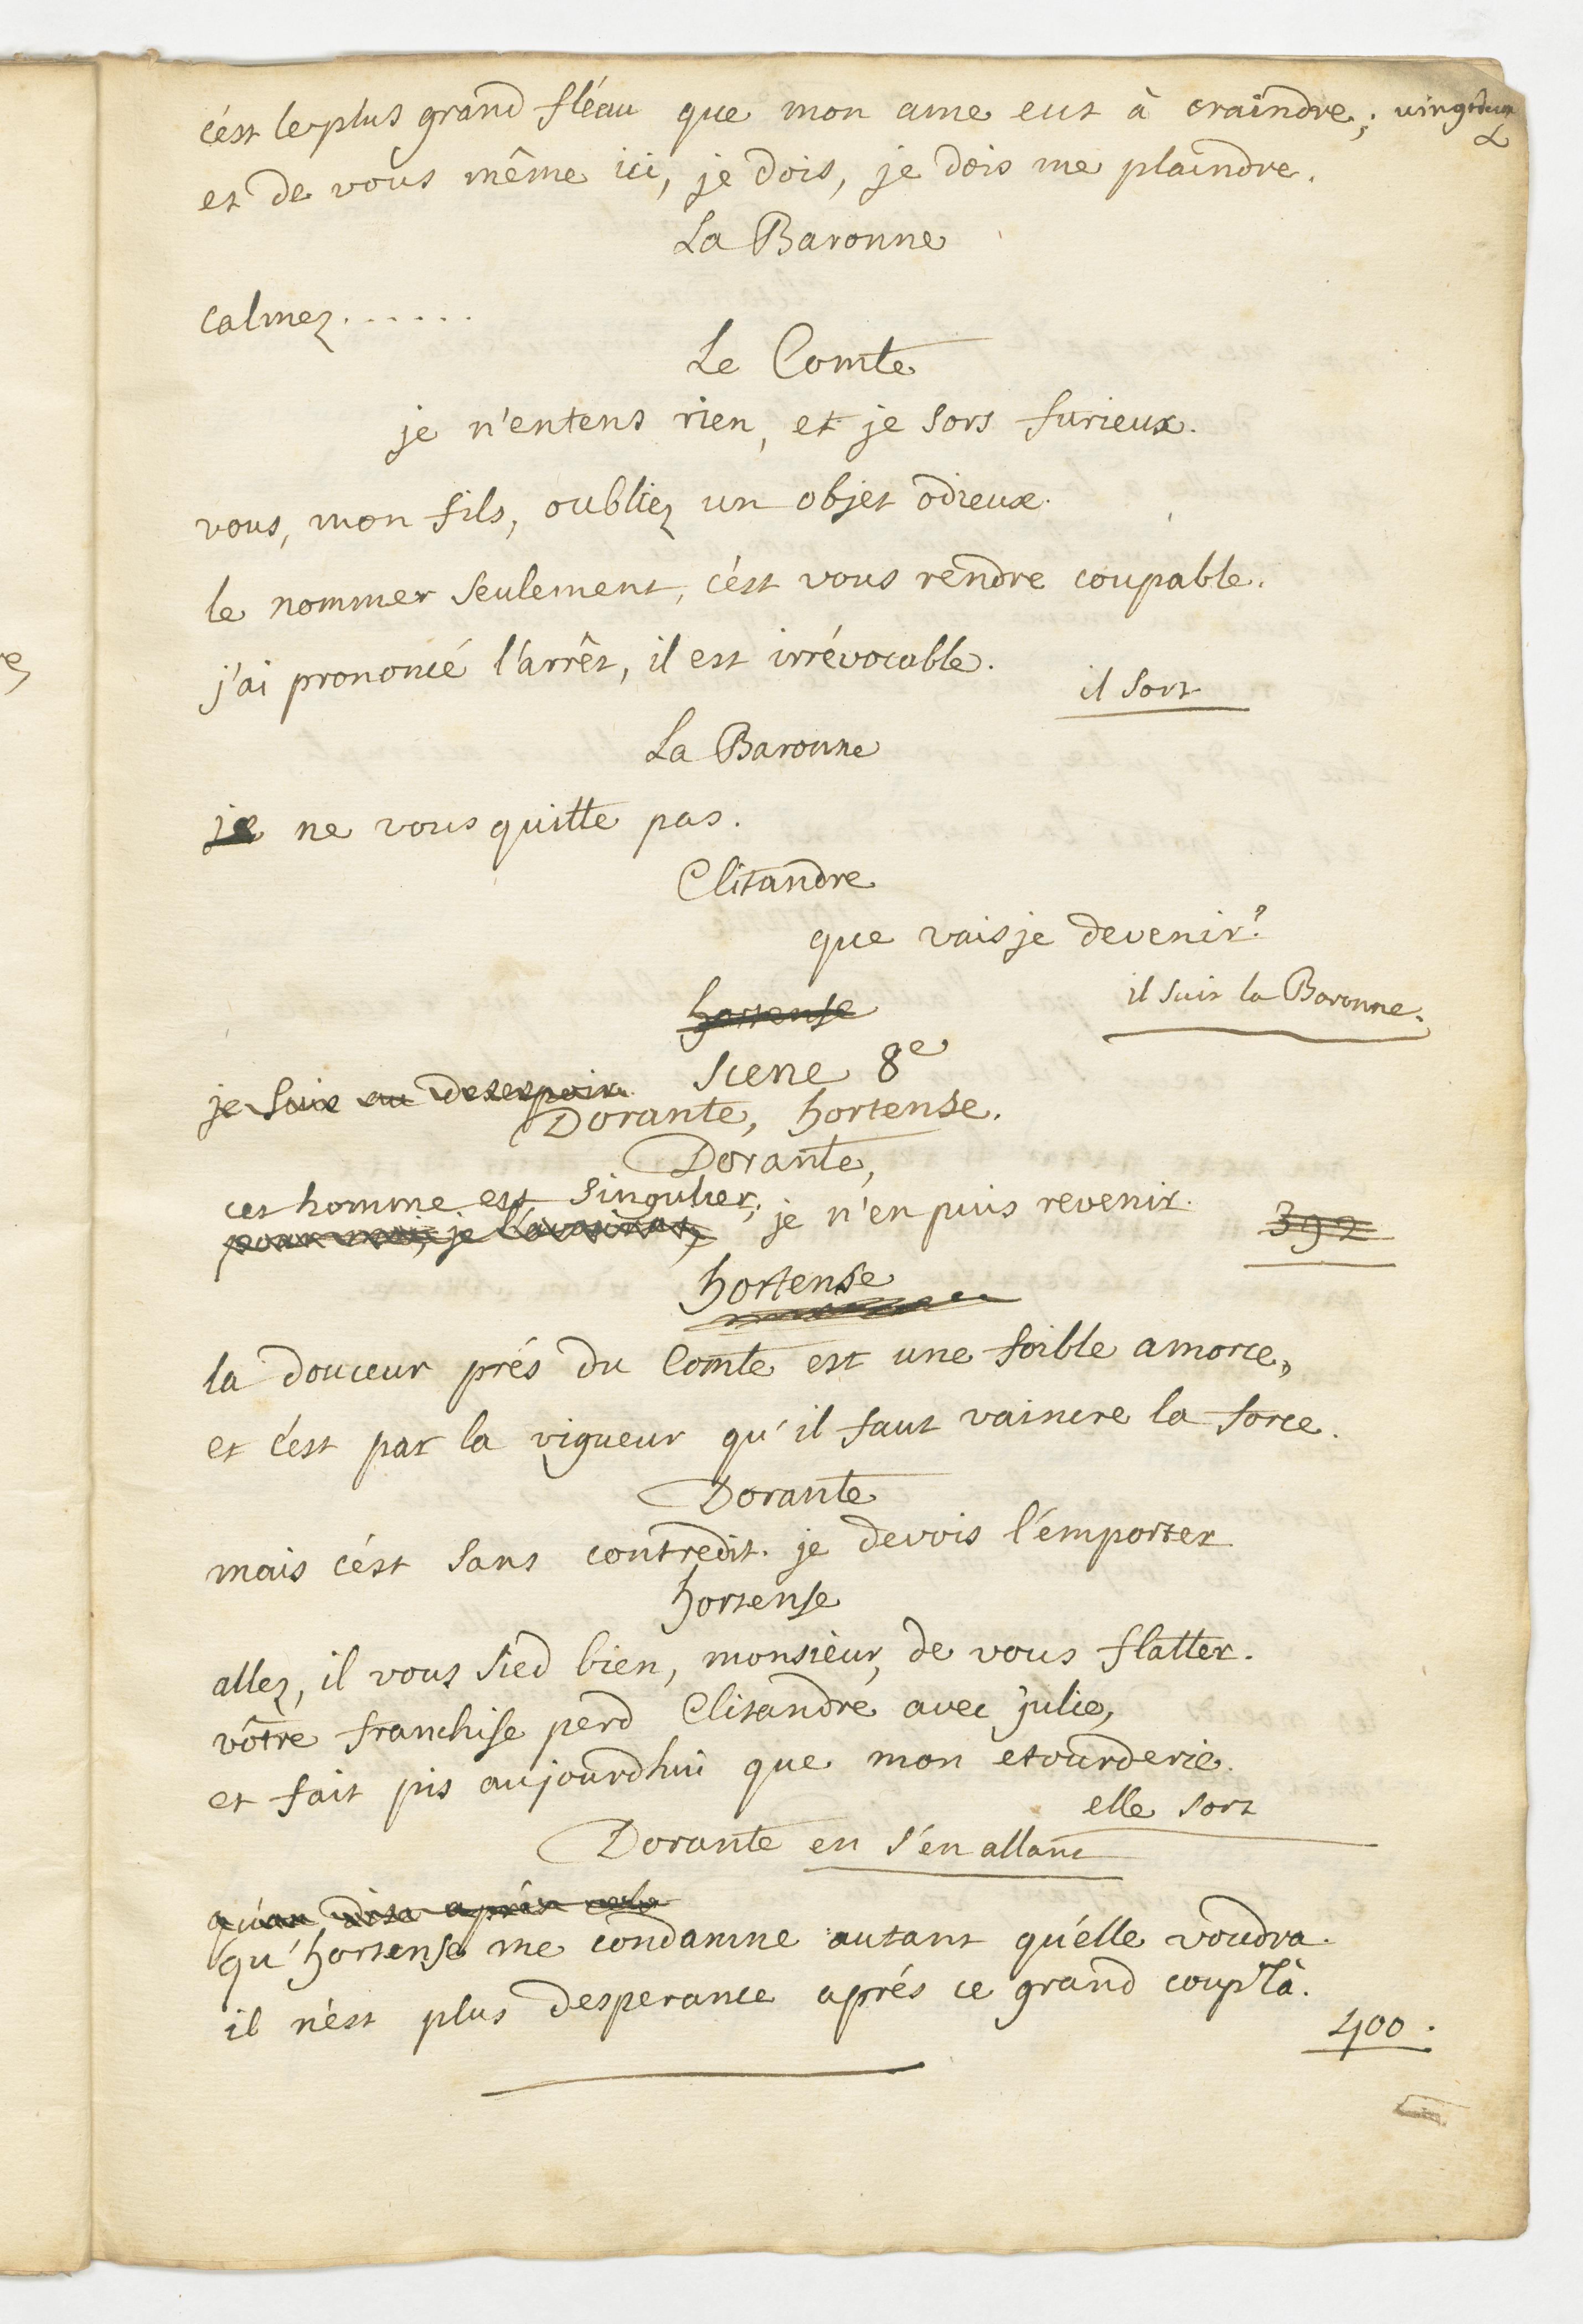 c'est le plus grand fléau que mon ame eut à craindre; vingtdeux
et de vous même ici, je dois, je dois me plaindre.
La Baronne
calmez......
Le Comte
je n'entens rien, et je sors furieux.
vous, mon fils, oubliez un objet odieux.
le nommer seulement, c'est vous rendre coupable.
j'ai prononcé l'arrêt, il est irrévocable.
il sort
La Baronne
je ne vous quitte pas.
Clitandre
que vais je devenir?
il suit la Baronne.
hortense
Scene 8e
je suis au desespoir.
Dorante, hortense.
Dorante,
cet homme est singulier,
pour moi, je je n'en puis revenir.
392
hortense
la douceur prés du Comte est une foible amorce,
et c'est par la vigueur qu'il faut vaincre la force.
Dorante
mais c'est sans contredit. je devois l'emporter
hortense
allez, il vous sied bien, monsieur, de vous flatter.
vôtre franchise perd Clitandre avec julie,
et fait pis aujourdhui que mon etourderie.
elle sort
Dorante en s'en allant
après cela
qu'hortense me condamne autant qu'elle voudra.
il n'est plus desperance aprés ce grand coup là.
400.